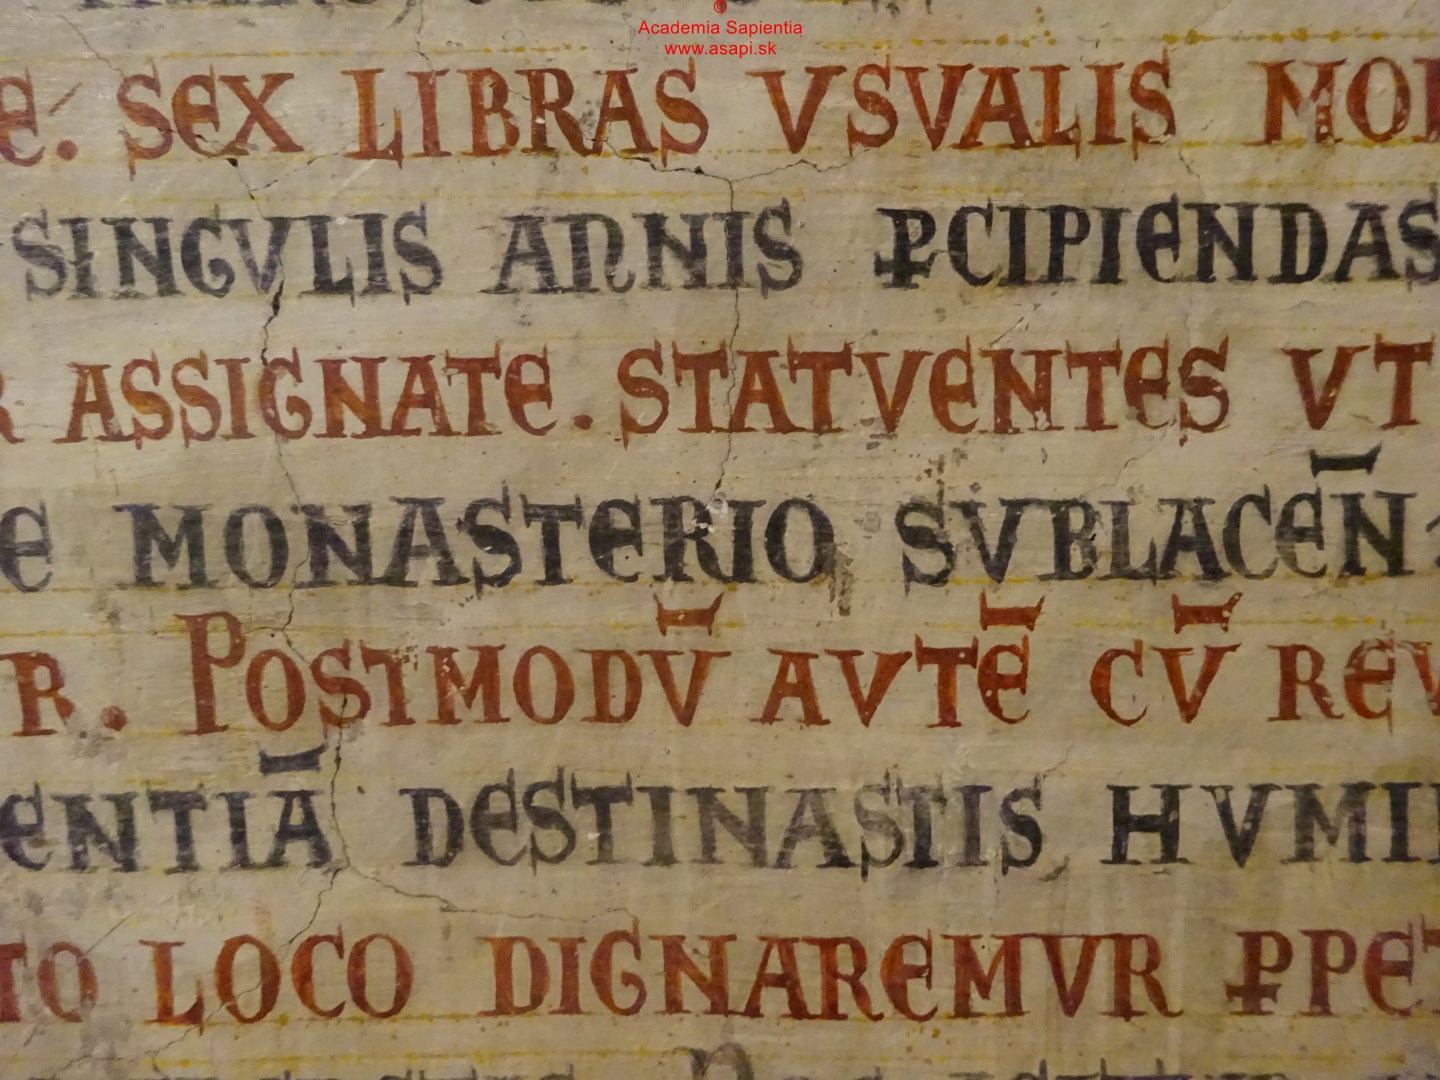 ©
Academia Sapientia
www.asapi.sk
SEX LIBRAS VSVALIS
SINGVLIS ANNIS ꝑCIPIENDAS
ASSIGNATE. STATVENTES VT
MONASTERIO SVBLACEN̄
R. POSTMODV̄ AVTĒ CV̄ REV
ENTIĀ DESTINASTIS HVMI
TO LOCO DIGNAREMVR ꝑPET